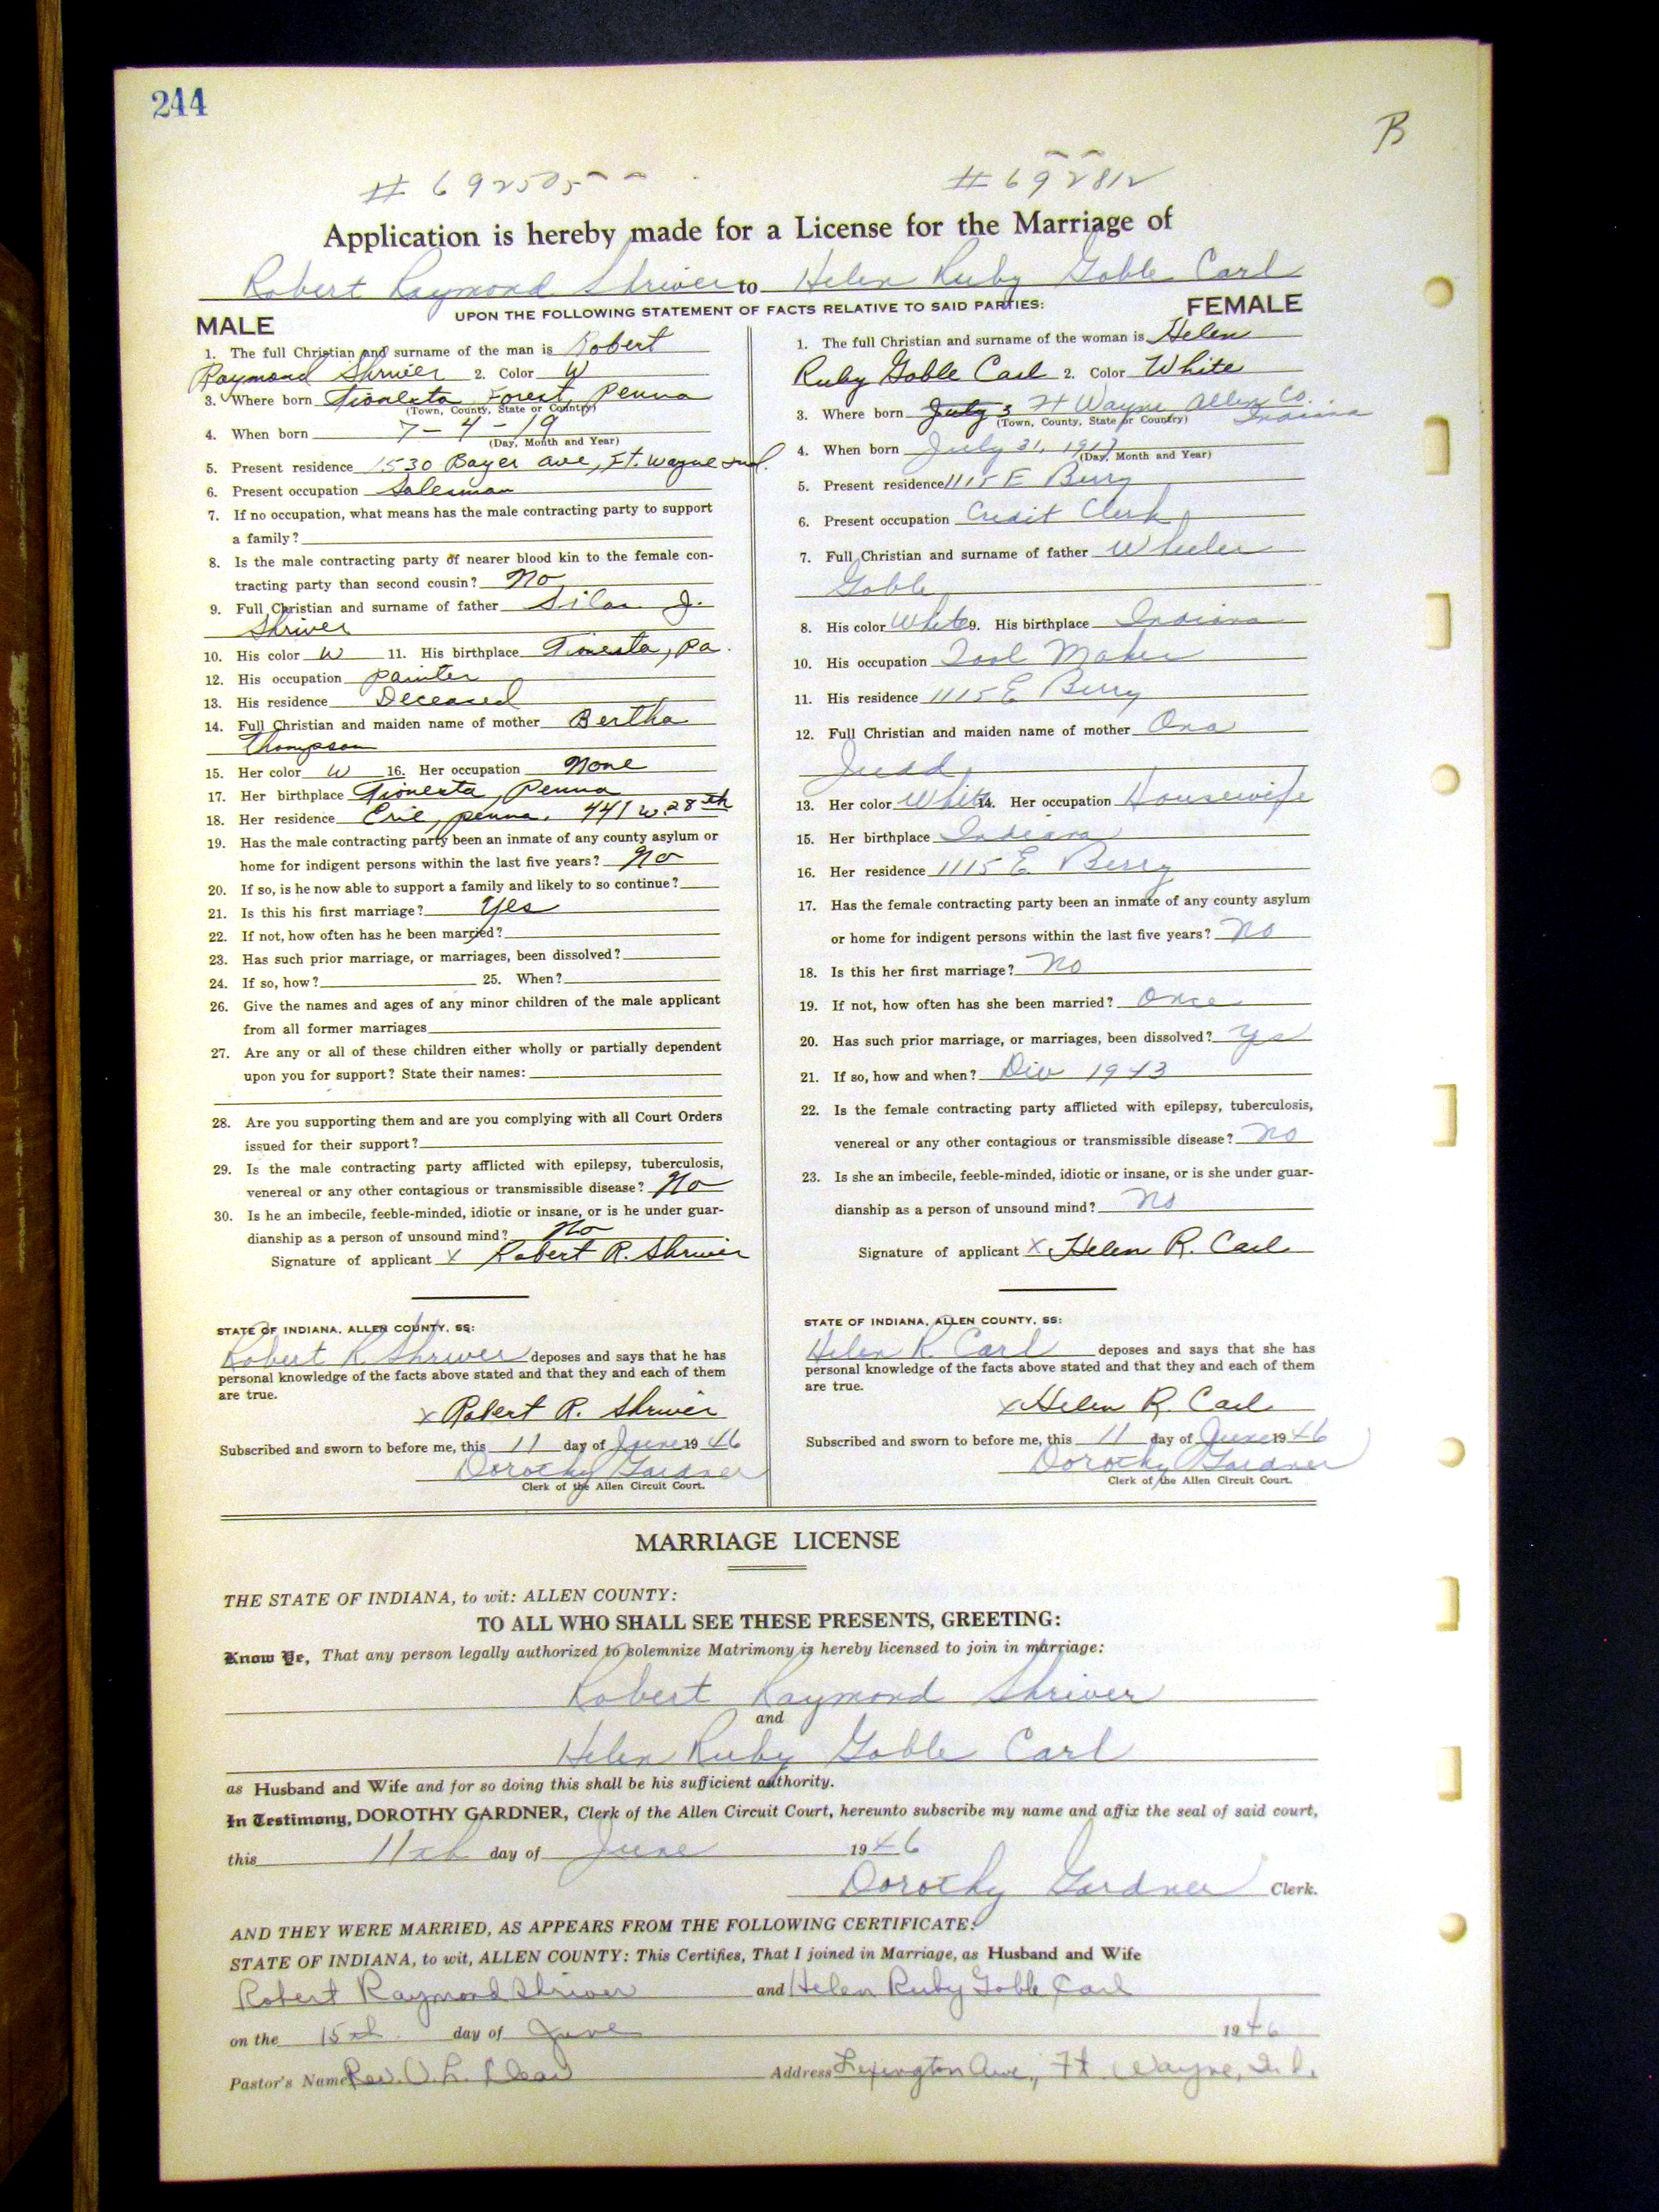 244
B
# 692505
# 692812
Application is hereby made for a License for the Marriage of
Robert Raymond Shriver to Helen Ruby Goble Carl
UPON THE FOLLOWING STATEMENT OF FACTS RELATIVE TO SAID PARTIES:
MALE
1. The full Christian and surname of the man is Robert
Raymond Shriver 2. Color W
3. Where born Tionesta Forest, Penna
(Town, County, State or Country)
4. When born 7-4-19
(Day, Month and Year)
5. Present residence 1530 Bayer ave, Ft. Wayne Ind.
6. Present occupation Salesman
7. If no occupation, what means has the male contracting party to support
a family?
8. Is the male contracting party of nearer blood kin to the female con-
tracting party than second cousin? No
9. Full Christian and surname of father Silas J.
Shriver
10. His color W 11. His birthplace Tionesta, Pa.
12. His occupation painter
13. His residence Deceased
14. Full Christian and maiden name of mother Bertha
Thompson
15. Her color W 16. Her occupation None
17. Her birthplace Tionesta, Penna
18. Her residence Erie, penna. 441 w. 28th
19. Has the male contracting party been an inmate of any county asylum or
home for indigent persons within the last five years? No
20. If so, is he now able to support a family and likely to so continue?
21. Is this his first marriage? Yes
22. If not, how often has he been married?
23. Has such prior marriage, or marriages, been dissolved?
24. If so, how? 25. When?
26. Give the names and ages of any minor children of the male applicant
from all former marriages
27. Are any or all of these children either wholly or partially dependent
upon you for support? State their names:
28. Are you supporting them and are you complying with all Court Orders
issued for their support?
29. Is the male contracting party afflicted with epilepsy, tuberculosis,
venereal or any other contagious or transmissible disease? No
30. Is he an imbecile, feeble-minded, idiotic or insane, or is he under guar-
dianship as a person of unsound mind? No
Signature of applicant x Robert R. Shriver
STATE OF INDIANA, ALLEN COUNTY, SS:
Robert R Shriver deposes and says that he has
personal knowledge of the facts above stated and that they and each of them
are true.
x Robert R. Shriver
Subscribed and sworn to before me, this 11 day of June 19 46
Dorothy Gardner
Clerk of the Allen Circuit Court.
FEMALE
1. The full Christian and surname of the woman is Helen
Ruby Goble Carl 2. Color White
3. Where born July 3 Ft Wayne Allen Co. Indiana
(Town, County, State or Country)
4. When born July 31, 1917
(Day, Month and Year)
5. Present residence 1115 E Berry
6. Present occupation Credit Clerk
7. Full Christian and surname of father Wheeler
Goble
8. His color White 9. His birthplace Indiana
10. His occupation Tool Maker
11. His residence 1115 E Berry
12. Full Christian and maiden name of mother Ona
Judd
13. Her color White 14. Her occupation Housewife
15. Her birthplace Indiana
16. Her residence 1115 E Berry
17. Has the female contracting party been an inmate of any county asylum
or home for indigent persons within the last five years? No
18. Is this her first marriage? No
19. If not, how often has she been married? Once
20. Has such prior marriage, or marriages, been dissolved? Yes
21. If so, how and when? Div 1943
22. Is the female contracting party afflicted with epilepsy, tuberculosis,
venereal or any other contagious or transmissible disease? No
23. Is she an imbecile, feeble-minded, idiotic or insane, or is she under guar-
dianship as a person of unsound mind? No
Signature of applicant x Helen R. Carl
STATE OF INDIANA, ALLEN COUNTY, SS:
Helen R. Carl deposes and says that she has
personal knowledge of the facts above stated and that they and each of them
are true.
x Helen R. Carl
Subscribed and sworn to before me, this 11 day of June 19 46
Dorothy Gardner
Clerk of the Allen Circuit Court.
MARRIAGE LICENSE
THE STATE OF INDIANA, to wit: ALLEN COUNTY:
TO ALL WHO SHALL SEE THESE PRESENTS, GREETING:
Know Ye, That any person legally authorized to solemnize Matrimony is hereby licensed to join in marriage:
Robert Raymond Shriver
and
Helen Ruby Goble Carl
as Husband and Wife and for so doing this shall be his sufficient authority.
In Testimony, DOROTHY GARDNER, Clerk of the Allen Circuit Court, hereunto subscribe my name and affix the seal of said court,
this 11th day of June 19 46
Dorothy Gardner Clerk.
AND THEY WERE MARRIED, AS APPEARS FROM THE FOLLOWING CERTIFICATE:
STATE OF INDIANA, to wit, ALLEN COUNTY: This Certifies, That I joined in Marriage, as Husband and Wife
Robert Raymond Shriver and Helen Ruby Goble Carl
on the 15th day of June 1946
Pastor's Name Rev. O. L. Address Lexington Ave., Ft. Wayne, Ind.